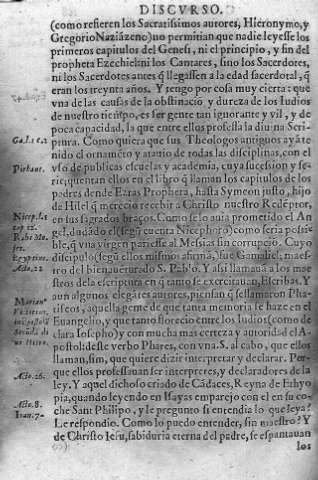 DISCVRSO.
(como refieren los Sacratissimos autores, Hieronymo, y
Gregorio Naziãzeno) no permitian que nadie leyesse los
primeros capitulos del Genesi, ni el principio, y fin del
propheta Ezechiel: ni los Cantares, sino los Sacerdotes,
ni los Sacerdotes antes q̃ llegassen a la edad sacerdotal, q̃
eran los treynta años. Y tengo por cosa muy cierta: que
vna de las causas de la obstinaciõ y dureza de los Iudios
de nuestro tiempo, es ser gente tan ignorante y vil, y de
poca capacidad, la que entre ellos professa la diuina Scri-
Gal. 1. c. 2
ptura. Como quiera que sus Theologos antiguos ayã te
nido el ornamẽto y atauio de todas las disciplinas, con el
vso de publicas escuelas y academia, cuya sucession y se-
rie, quentan ellos en el libro q̃ llaman los capitulos de los
padres desde Ezras Propheta, hasta Symeon justo, hijo
de Hilel q̃ merecio recebir a Christo nuestro Redẽptor,
en sus sagrados braços. Como selo auia prometido el An
Niceph. l. 1
gel, dudãdo el (segũ cuenta Nicephoro) como seria possi-
ble, q̃ vna virgen pariesse al Messias sin corrupciõ. Cuyo
discipulo (segũ ellos mismos afirmã) fue Gamaliel, maes-
Acto. 22
tro del bienauẽturado S. Pablo. Y assi llamauã a los mae
stros dela escriptura en q̃ tanto se exercitauan, Escribas. Y
aun algunos elegãtes autores, piensan q̃ se llamaron Pha
riseos, aquella gente de que tanta memoria se haze en el
Euangelio, y que tanto florecio entre los Iudios (como de
clara Iosepho) y con mucha mas certeza y autoridad el A-
postol: deste verbo Phares, con vna. S. al cabo, que ellos
llaman, sim, que quiere dizir interpretar y declarar. Por-
que ellos professauan ser interpreres, y declaradores de la
Acto. 26.
ley. Y aquel dichoso criado de Cãdaces, Reyna de Ethyo
pia, quando leyendo en Isayas emparejo con el en su co-
Acto. 8.
che Sant Philipo, y le pregunto si entendia lo que leya?
Ioan. 7.
Le respondio. Como lo puedo entender, sin maestro? Y
de Christo Iesu, sabiduria eterna del padre, se espantauan
los